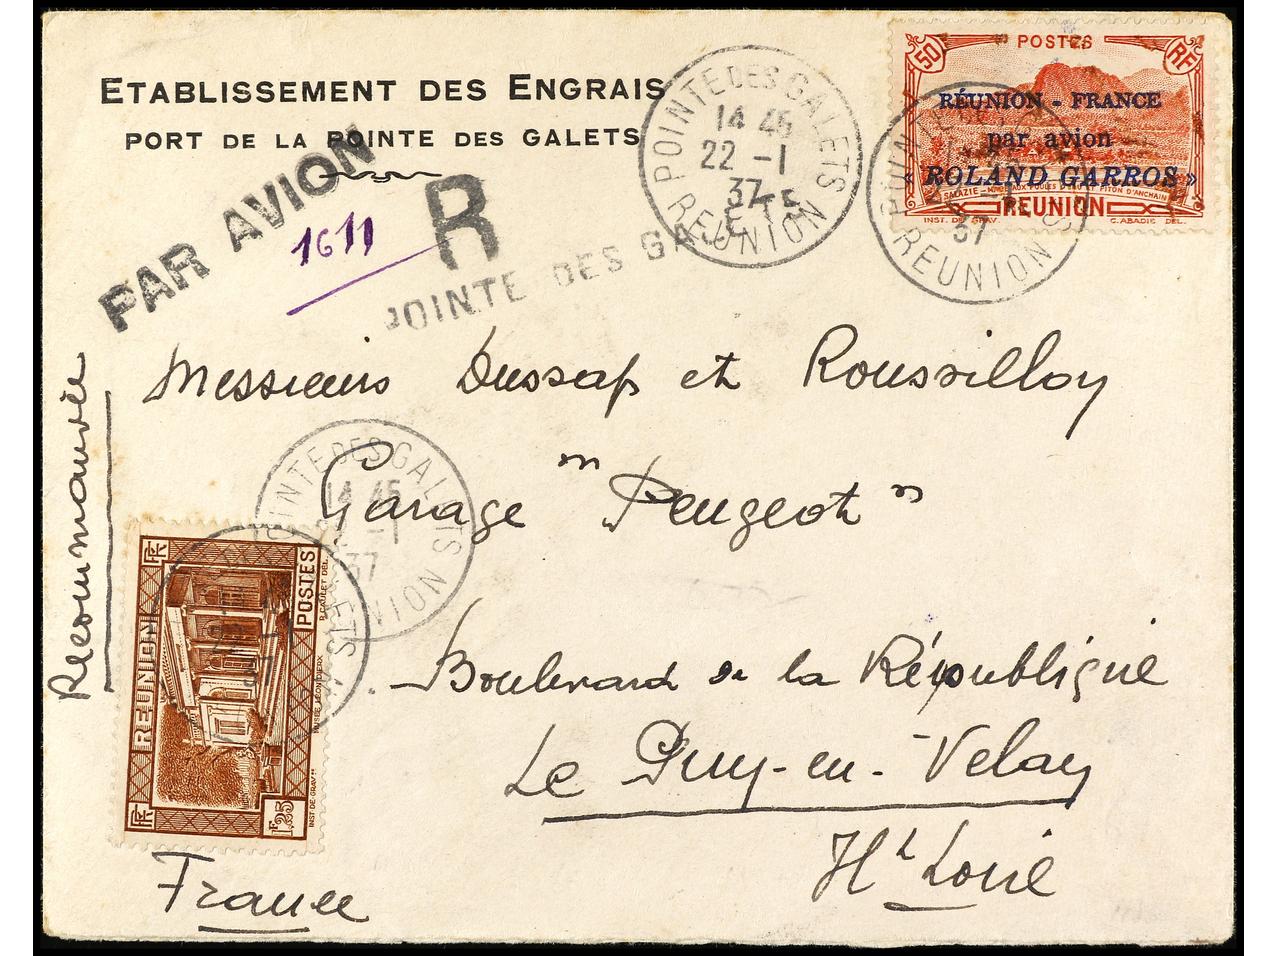 ETABLISSEMENT DES ENGRAIS
PORT DE LA POINTE DES GALETS
PAR AVION
1611
R
POINTE DES GALETS
POINTE DES GALETS
14 45
22 -1
37
REUNION
50 POSTES RF
RÉUNION - FRANCE
par avion
« ROLAND GARROS »
SALAZIE
PITON D'ANCHAIN
REUNION
INST. DE GRAV. C. ABADIE DEL.
37
REUNION
Messieurs Dussap et Roussilloy
Garage "Peugeot"
Boulevard de la République
Le Puy-en-Velay
Hte Loire
France
Recommandée
POINTE DES GALETS
14 45
-1
37
REUNION
RF
REUNION
POSTES
1F25
RF
MUSÉE LÉON DIERX
INST. DE GRAV.